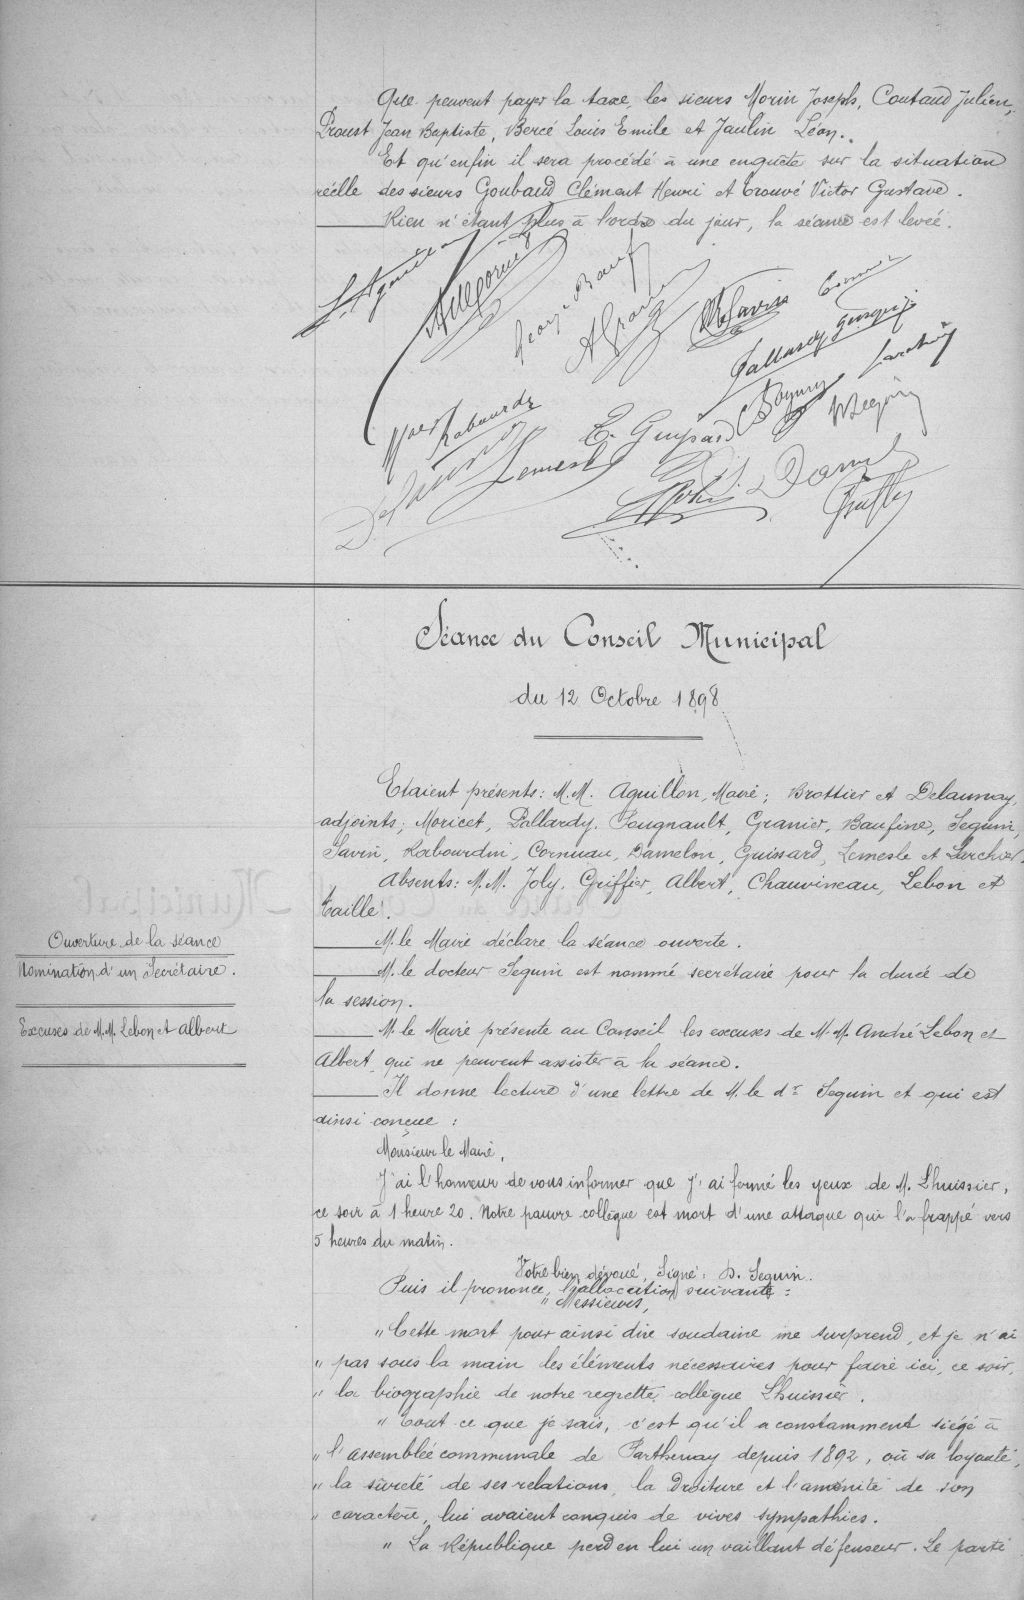 Que peuvent payer la taxe, les sieurs Morin Joseph, Coutaud Julien,
Proust Jean Baptiste, Bercé Louis Emile et Jaulin Léon.
Et qu'enfin il sera procédé à une enquête sur la situation
réelle des sieurs Goubaud Clément Henri et Trouvé Victor Gustave.
Rien n'étant plus à l'ordre du jour, la séance est levée.
Rabourdin
Lemesle
E. Guissard
Séance du Conseil Municipal
du 12 Octobre 1898
Etaient présents: M.M. Aguillon, Maire; Brottier et Delaunay,
adjoints; Moricet, Pallardy, Feugnault, Granier, Baufine, Seguin,
Savin, Rabourdin, Cornuau, Damelon, Guissard, Lemesle et Larcher.
Absents: M.M. Joly, Griffier, Albert, Chauvineau, Lebon et
Taillé.
Ouverture de la séance
M. le Maire déclare la séance ouverte.
Nomination d'un Secrétaire.
M. le docteur Seguin est nommé secrétaire pour la durée de
la session.
Excuses de M.M. Lebon et Albert
M. le Maire présente au Conseil les excuses de M.M. André Lebon et
Albert, qui ne peuvent assister à la séance.
Il donne lecture d'une lettre de M. le dr Seguin et qui est
ainsi conçue :
Monsieur le Maire,
J'ai l'honneur de vous informer que j'ai fermé les yeux de M. Lhuissier,
ce soir à 1 heure 20. Notre pauvre collègue est mort d'une attaque qui l'a frappé vers
5 heures du matin.
Votre bien dévoué, Signé: D. Seguin.
Puis il prononce l'allocution suivante :
" Messieurs,
" Cette mort pour ainsi dire soudaine me surprend, et je n'ai
" pas sous la main les éléments nécessaires pour faire ici, ce soir,
" la biographie de notre regretté collègue Lhuissier.
" Tout ce que je sais, c'est qu'il a constamment siégé à
" l'assemblée communale de Parthenay depuis 1892, où sa loyauté,
" la sûreté de ses relations, la droiture et l'aménité de son
" caractère, lui avaient conquis de vives sympathies.
" La République perd en lui un vaillant défenseur. Le parti